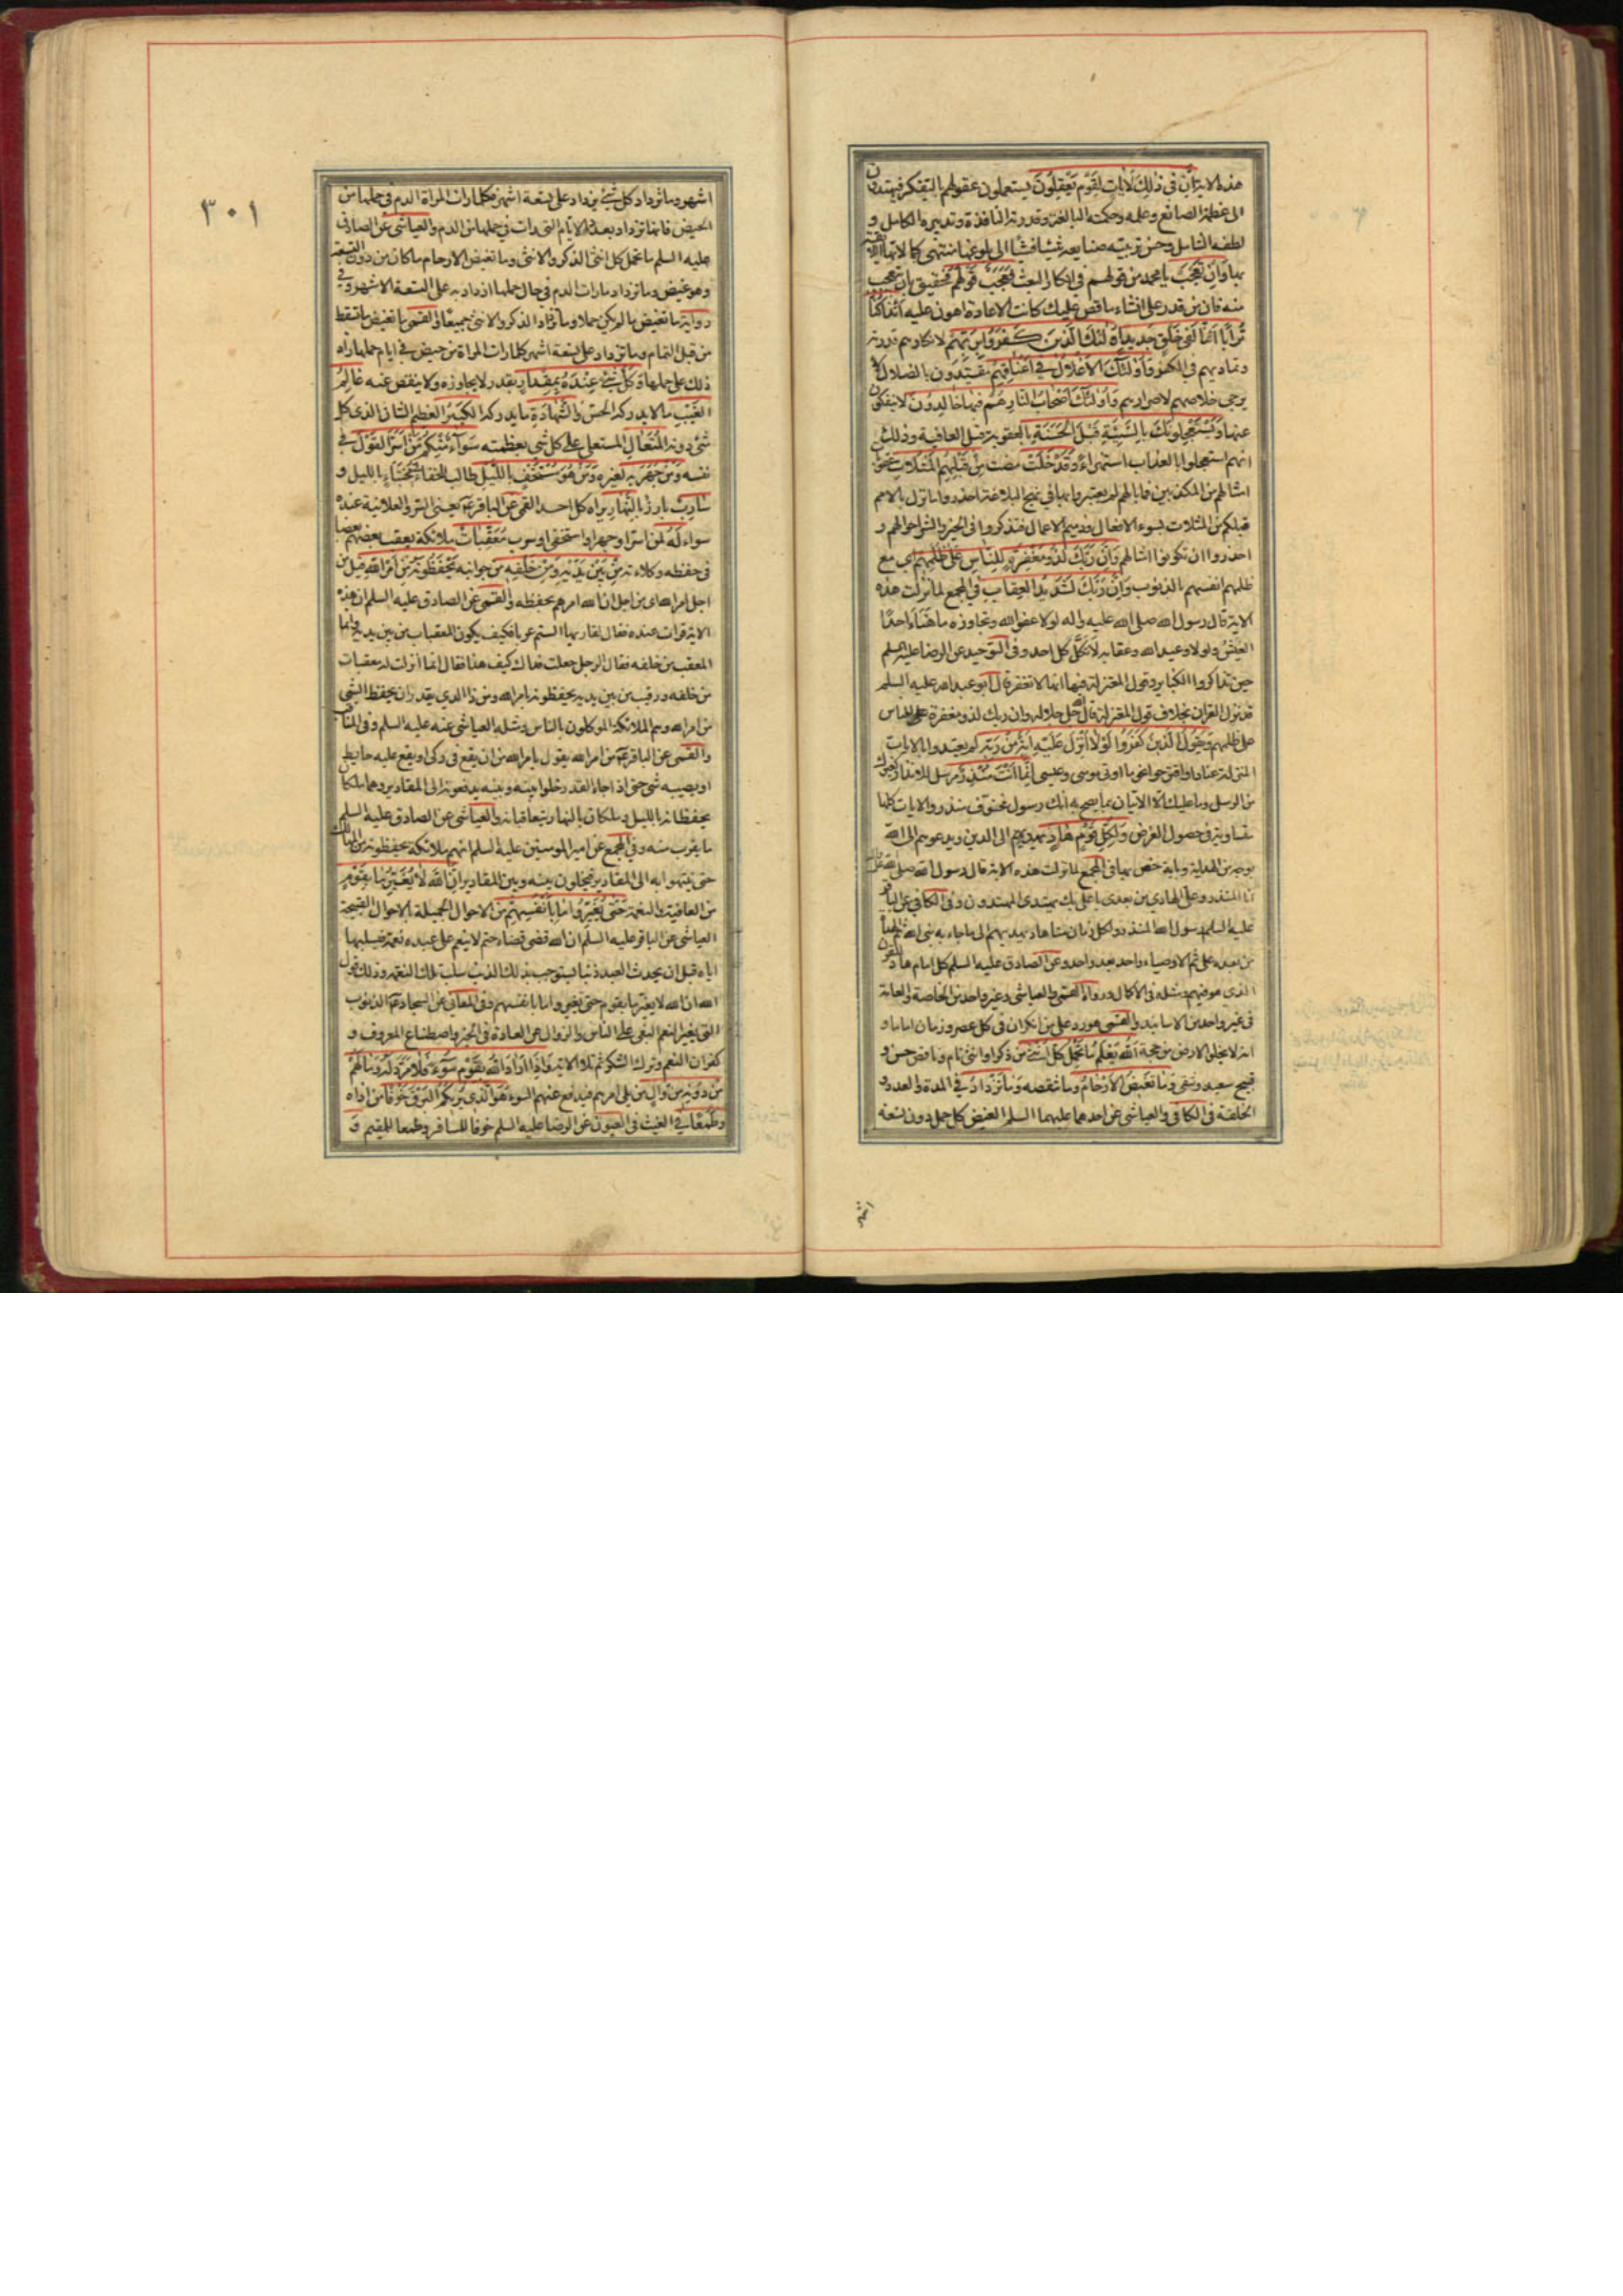 هذه الايتان في ذلِكَ لَآياتٍ لِقَوْمٍ يَعْقِلُونَ يستعملون عقولهم بالتفكر فيهتدون
الى عظمة الصانع وعلمه وحكمته البالغة وقدرته النافذة وتدبيره الكامل و
لطفه الشامل وحسن تربيته صنايعه شيئا فشيئا الى بلوغها منتهى كمالاتها اللايقة
بها وَاِنْ تَعْجَبْ يا محمد من قولهم في انكار البعث فَعَجَبٌ قَوْلُهُمْ فحقيق بان يتعجب
منه فان من قدر على انشاء ما قص عليك كانت الاعادة اهون عليه أَئِذا كُنّا
تُراباً أَئِنّا لَفي خَلْقٍ جَديدٍ أُولئِكَ الَّذينَ كَفَرُوا بِرَبِّهِمْ لانكارهم قدرته
وتماديهم في الكفر وَأُولئِكَ الْأَغْلالُ في أَعْناقِهِمْ مقيّدون بالضلال لا
يرجى خلاصهم لاصرارهم وَأُولئِكَ أَصْحابُ النّارِ هُمْ فيها خالِدُونَ لا ينفكون
عنها وَيَسْتَعْجِلُونَكَ بِالسَّيِّئَةِ قَبْلَ الْحَسَنَةِ بالعقوبة قبل العافية وذلك
انهم استعجلوا بالعذاب استهزاء وَقَدْ خَلَتْ مضت مِنْ قَبْلِهِمُ الْمَثُلاتُ عقوبات
امثالهم من المكذبين فما بالهم لم يعتبروا بها في نهج البلاغة احذروا ما نزل بالامم
قبلكم من المثلات بسوء الافعال وذميم الاعمال فتذكروا في الخير والشر احوالهم و
احذروا ان تكونوا امثالهم وَاِنَّ رَبَّكَ لَذُو مَغْفِرَةٍ لِلنّاسِ عَلى ظُلْمِهِمْ اي مع
ظلمهم انفسهم بالذنوب وَاِنَّ رَبَّكَ لَشَديدُ الْعِقابِ في المجمع لما نزلت هذه
الاية قال رسول الله صلى الله عليه واله لولا عفو الله وتجاوزه ما هنأ احدا
العيش ولولا وعيد الله وعقابه لاتكل كل احد وفي التوحيد عن الرضا عليه السلم
حين تذاكروا الكباير وقول المعتزلة فيها انها لا تغفر قال ابو عبد الله عليه السلم
قد نزل القران بخلاف قول المعتزلة قال الله جل جلاله وان ربك لذو مغفرة للناس
على ظلمهم وَيَقُولُ الَّذينَ كَفَرُوا لَوْلا أُنْزِلَ عَلَيْهِ آيَةٌ مِنْ رَبِّهِ لم يعتدوا بالايات
المنزلة عنادا واقترحوا نحو ما اوتي موسى وعيسى اِنَّما أَنْتَ مُنْذِرٌ مرسل للانذار كغيرك
من الرسل وما عليك الا الاتيان بما يصح به انك رسول مخوف منذر والايات كلها
متساوية في حصول الغرض وَلِكُلِّ قَوْمٍ هادٍ يهديهم الى الدين ويدعوهم الى الله
بوجه من الهداية وباية خص بها في المجمع لما نزلت هذه الاية قال رسول الله صلى الله عليه
انا المنذر وعلى الهادي من بعدي يا علي بك يهتدي المهتدون وفي الكافي عن الباقر
عليه السلم رسول الله المنذر ولكل زمان منا هاد يهديهم الى ما جاء به نبي الله ثم الهداة
من بعده علي ثم الاوصياء واحد بعد واحد وعن الصادق عليه السلم كل امام هاد للقرن
الذي هو فيهم ومثله في الاكمال ورواه القمي والعياشي وغير واحد من الخاصة والعامة
في غير واحد من الاسانيد والقمي هو رد على من انكر ان في كل عصر وزمان اماما و
انه لا يخلو الارض من حجة اَللهُ يَعْلَمُ ما تَحْمِلُ كُلُّ أُنْثى من ذكر او انثى تام وناقص حسن و
قبيح سعيد وشقي وَما تَغيضُ الْأَرْحامُ وما تنقصه وَما تَزْدادُ في المدة والعدد و
الخلقة في الكافي والعياشي عن احدهما عليهما السلم الغيض كل حمل دون تسعة
اشهر
٣٠١
اشهر وما تزداد كل شئ يزداد على تسعة اشهر فكلما رات المراة الدم في حملها من
الحيض فانها تزداد بعدد الايام التي رات في حملها من الدم والعياشي عن الصادق
عليه السلم ما تحمل كل انثى الذكر والانثى وما تغيض الارحام ما كان من دون التسعة
وهو غيض وما تزداد ما رات الدم في حال حملها ازداد به على التسعة الاشهر وفي
رواية ما تغيض ما لم يكن حملا وما تزداد الذكر والانثى جميعا والقمي ما تغيض ما تسقط
من قبل التمام وما تزداد على تسعة اشهر كلما رات المراة من حيض في ايام حملها زاد
ذلك على حملها وَكُلُّ شَيْءٍ عِنْدَهُ بِمِقْدارٍ بقدر لا يجاوزه ولا ينقص عنه عالِمُ
الْغَيْبِ ما لا يدركه الحس وَالشَّهادَةِ ما يدركه الْكَبيرُ العظيم الشان الذي كل
شئ دونه الْمُتَعالِ المستعلي على كل شئ بعظمته سَواءٌ مِنْكُمْ مَنْ أَسَرَّ الْقَوْلَ في
نفسه وَمَنْ جَهَرَ بِهِ لغيره وَمَنْ هُوَ مُسْتَخْفٍ بِاللَّيْلِ طالب للخفاء في مختباء بالليل وَ
سارِبٌ بارز بِالنَّهارِ يراه كل احد القمي عن الباقر يعني السر والعلانية عنده
سواء لَهُ لمن اسر او جهر او استخفى او سرب مُعَقِّباتٌ ملائكة يعقب بعضهم بعضا
في حفظه وكلاءته مِنْ بَيْنِ يَدَيْهِ وَمِنْ خَلْفِهِ من جوانبه يَحْفَظُونَهُ مِنْ أَمْرِ اللهِ قيل من
اجل امر الله اي من اجل ان الله امرهم بحفظه والقمي عن الصادق عليه السلم ان هذه
الاية قرات عنده فقال لقاريها الستم عربا فكيف يكون المعقبات من بين يديه وانما
المعقب من خلفه فقال الرجل جعلت فداك كيف هذا فقال انما انزلت له معقبات
من خلفه ورقيب من بين يديه يحفظونه بامر الله ومن ذا الذي يقدر ان يحفظ الشئ
من امر الله وهم الملائكة الموكلون بالناس ومثله العياشي عنه عليه السلم وفي المناقب
والقمي عن الباقر من امر الله يقول بامر الله من ان يقع في ركي او يقع عليه حايط
او يصيبه شئ حتى اذا جاء القدر خلوا بينه وبينه يدفعونه الى المقادير وهما ملكان
يحفظانه بالليل وملكان بالنهار يتعاقبانه والعياشي عن الصادق عليه السلم
ما يقرب منه وفي المجمع عن امير المومنين عليه السلم انهم ملائكة يحفظونه من المهالك
حتى ينتهوا به الى المقادير فيخلون بينه وبين المقادير اِنَّ اللهَ لا يُغَيِّرُ ما بِقَوْمٍ
من العافية والنعمة حَتّى يُغَيِّرُوا ما بِأَنْفُسِهِمْ من الاحوال الجميلة بالاحوال القبيحة
العياشي عن الباقر عليه السلم ان الله قضى قضاء حتم لا ينعم على عبده نعمة فيسلبها
اياه قبل ان يحدث العبد ذنبا يستوجب بذلك الذنب سلب تلك النعمة وذلك قول
الله ان الله لا يغير ما بقوم حتى يغيروا ما بانفسهم وفي المعاني عن السجاد الذنوب
التي يغير النعم البغي على الناس والزوال عن العادة في الخير واصطناع المعروف و
كفران النعم وترك الشكر ثم تلا الاية وَاِذا أَرادَ اللهُ بِقَوْمٍ سُوءاً فَلا مَرَدَّ لَهُ وَما لَهُمْ
مِنْ دُونِهِ مِنْ والٍ من يلي امرهم فيدافع عنهم السوء هُوَ الَّذي يُريكُمُ الْبَرْقَ خَوْفاً من اذاه
وَطَمَعاً في الغيث في العيون عن الرضا عليه السلم خوفا للمسافر وطمعا للمقيم وَ